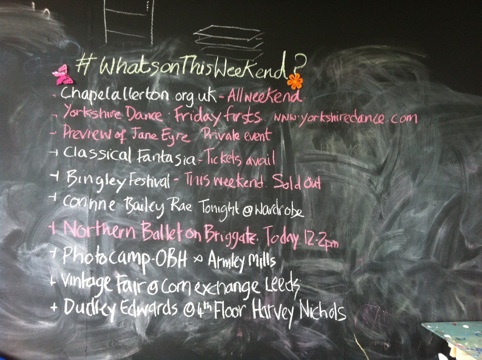 #WhatsonThisWeekend?
- Chapelallerton.org.uk - All weekend
- Yorkshire Dance: Friday firsts www.yorkshiredance.com
- Preview of Jane Eyre Private event
+ Classical Fantasia - Tickets avail
+ Bingley Festival - This weekend. Sold Out
+ Corinne Bailey Rae Tonight @ Wardrobe
+ Northern Ballet on Briggate. Today 12-2pm
+ Photocamp-OBH > Armley Mills
+ Vintage Fair @ Corn exchange Leeds
+ Dudley Edwards @ 4th Floor Harvey Nichols